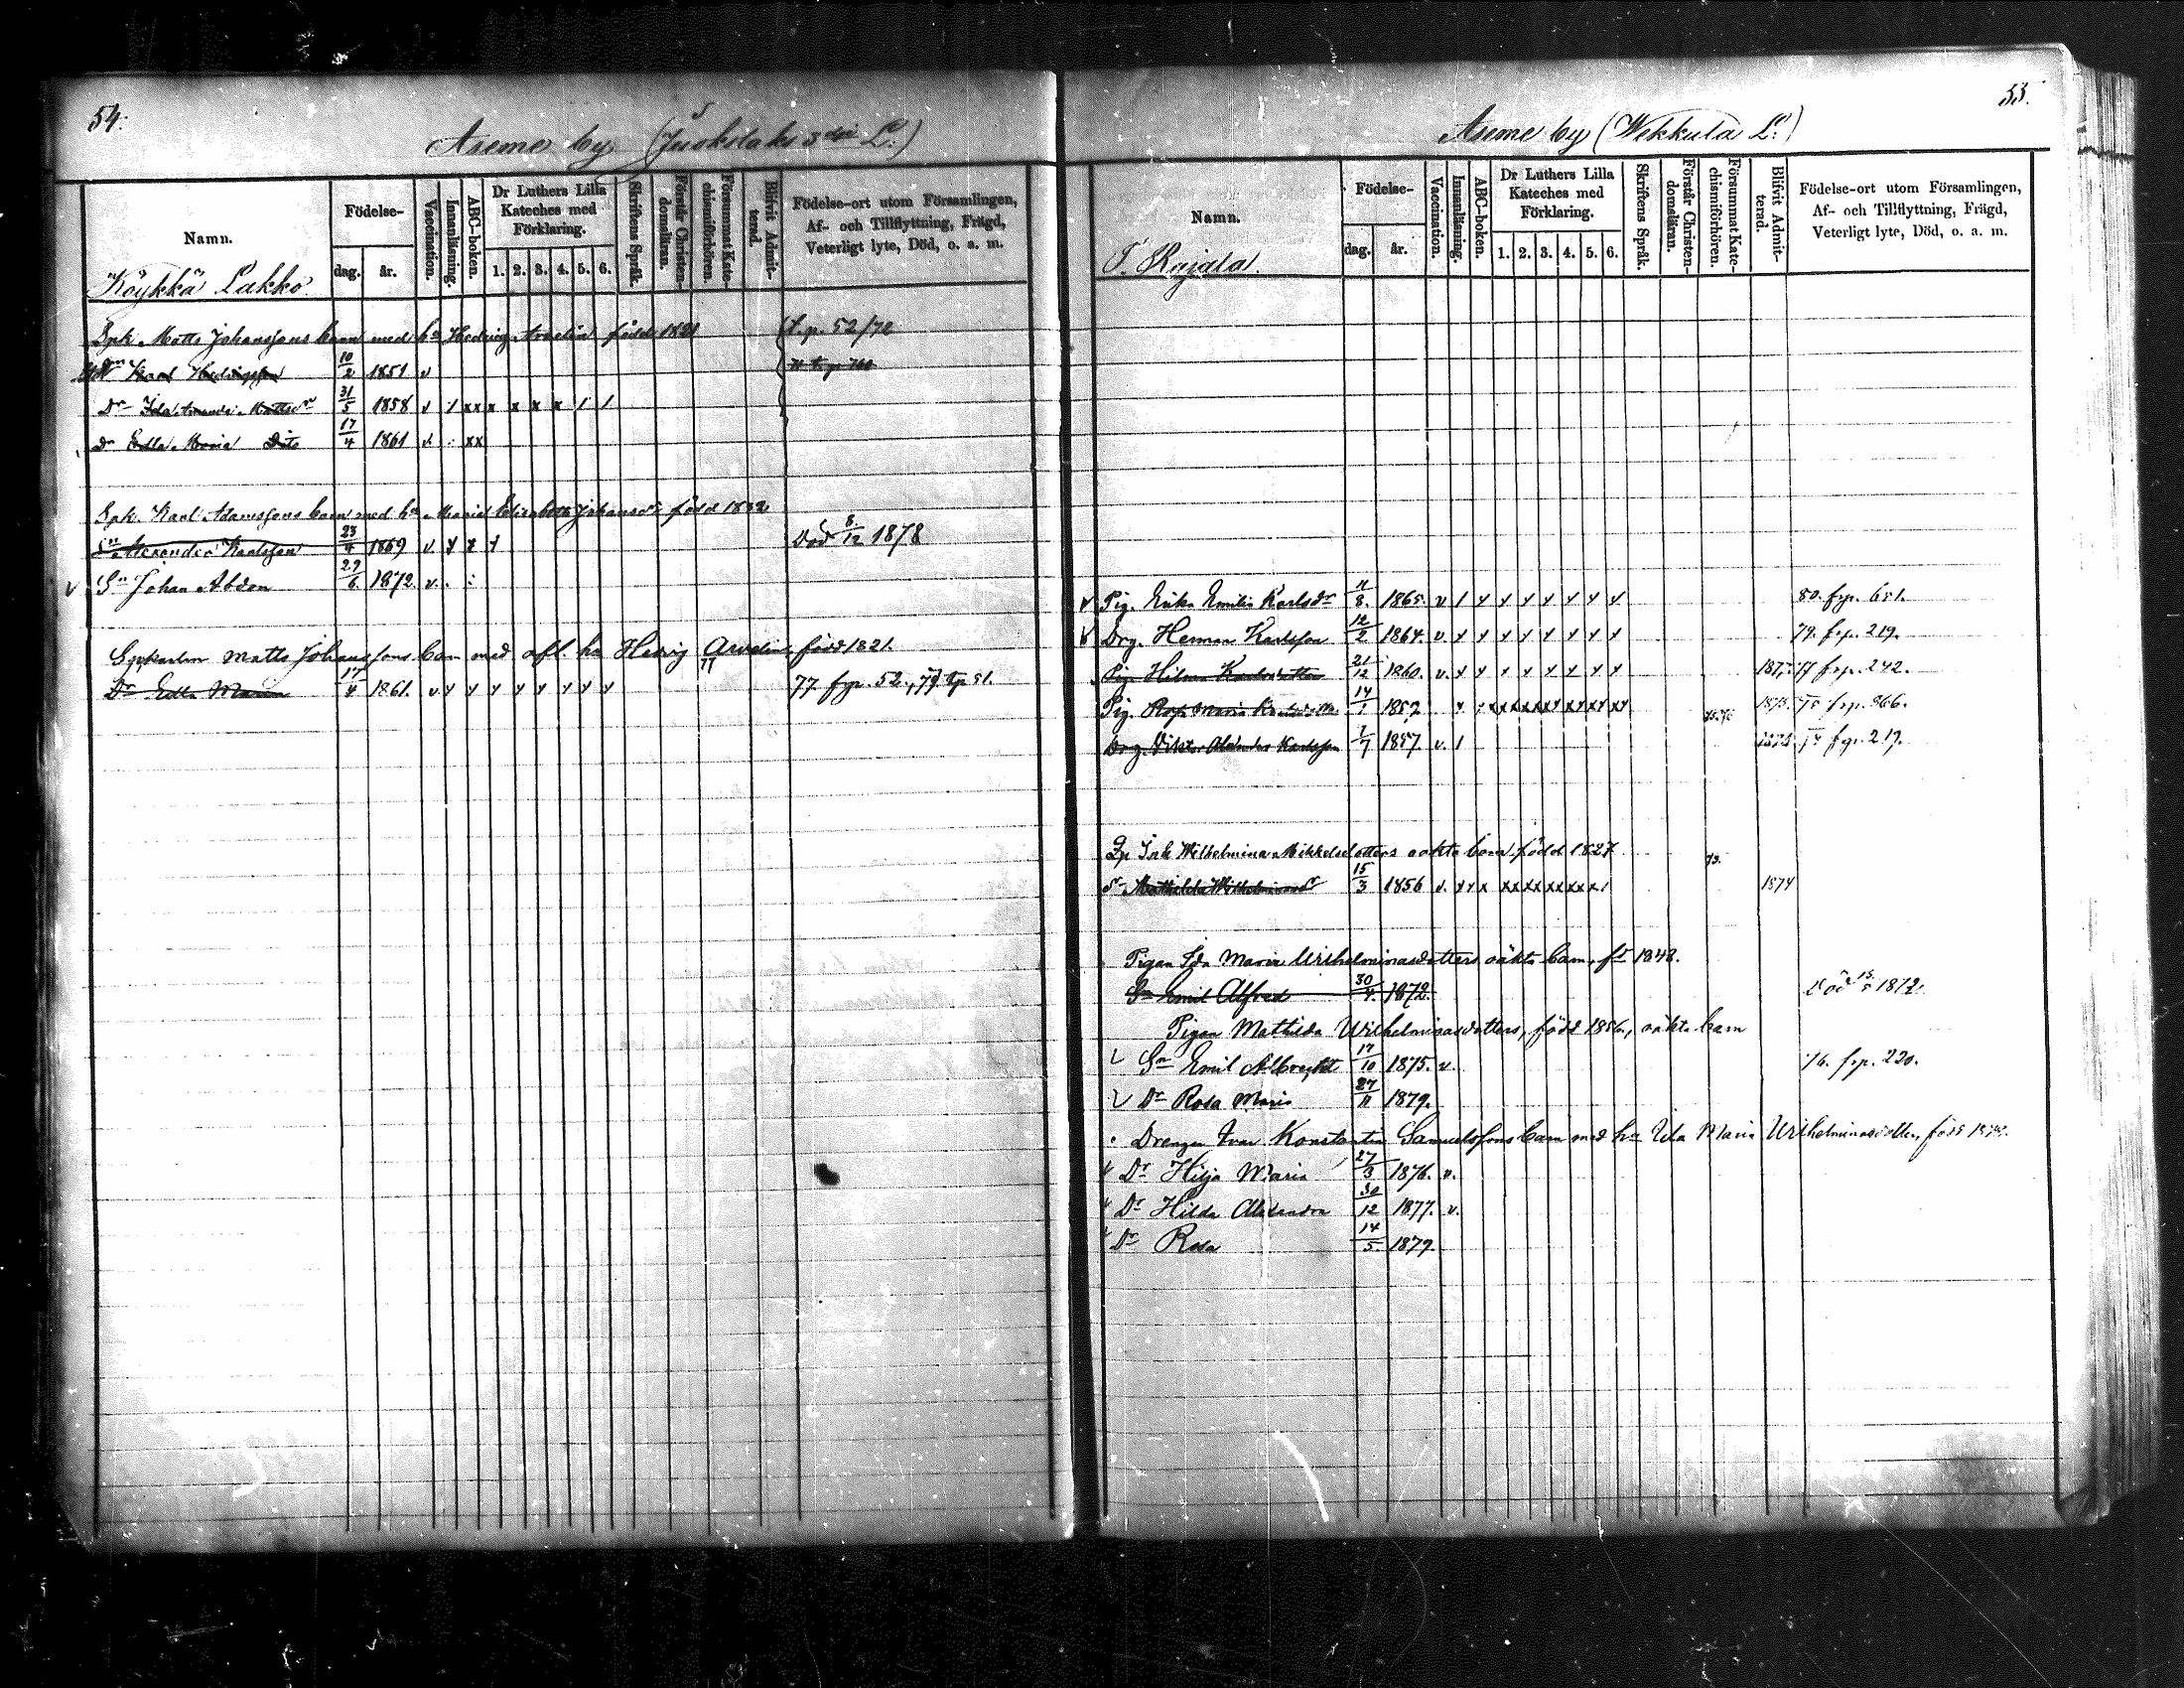 54.
Areme by (Juokslaks 3die L:)
Namn.
Födelse-
dag.
år.
Vaccination.
Innanläsning.
ABC-boken.
Dr Luthers Lilla Kateches med Förklaring.
1. 2. 3. 4. 5. 6.
Skriftens Språk.
Förstår Christendomsläran.
Försummat Katechismiförhören.
Blifvit Admitterad.
Födelse-ort utom Församlingen, Af- och Tillflyttning, Frägd, Veterligt lyte, Död, o. s. m.
Köykkä Lakko
Spk. Matts Johanssons barn med h. Hedvig Arvelin född 1821 f.p. 52/72
10/2 1851 v
Dr Ida Amanda Mattsdr 31/5 1858 v / x x x x x x / /
Dr Edla Maria Dito 17/4 1861 v xx
Spk. Karl Adamssons barn med h. Maria Elisabeth Johansdr född 1832
Sn Alexander Karlsson 23/4 1869 v. x x x Död 8/12 1878
v Sn Johan Abdon 29/6 1872 v.
Spkarlen Matts Johanssons barn med afl. h. Hedvig Arvelin, född 1821.
Dr Edla Maria 17/4 1861. v x x x x x x x x 77 77 frp. 52., 79 tp 51.
55.
Areme by (Wekkula L:)
Namn.
Födelse-
dag.
år.
Vaccination.
Innanläsning.
ABC-boken.
Dr Luthers Lilla Kateches med Förklaring.
1. 2. 3. 4. 5. 6.
Skriftens Språk.
Förstår Christendomsläran.
Försummat Katechismiförhören.
Blifvit Admitterad.
Födelse-ort utom Församlingen, Af- och Tillflyttning, Frägd, Veterligt lyte, Död, o. s. m.
T. Rajala.
v Pig. Erika Emilia Karlsdr 11/8. 1865. v / x x x x x x x 80. frp. 651.
v Drg. Herman Karlsson 12/2 1864. v. x x x x x x x x 79. frp. 219.
Pig. Hilma Karlsdotter 21/12 1860. v. x x x x x x x x 77 frp. 242.
Pig. Rosa Maria 14/1 1857 1875. 75 frp. 266.
Drg. Viktor Alexander Karlsson 1/7 1857. v. / 1874 74 frp. 219.
Wilhelmina Mikkelsdotters oäkta barn, född 1827 73.
Dr Mathilda Wilhelminasdr 15/3 1856 v. x x x xx xx xx xx x 1874
Pigan Ida Maria Wilhelminasdotters oäkta barn, f. 1848.
Sn Emil Alfred 30/4. 1872. Död 15/5 1872.
Pigan Mathilda Wilhelminasdotters, född 1856, oäkta barn
Sn Emil Albregkt 17/10 1875. v. 76. frp. 220.
Dr Rosa Maria 27/11 1879.
Drengen Ivar Konstantin Samuelssons barn med h. Ida Maria Wilhelminasdotter, född 1848.
Dr Hilja Maria 27/3 1876. v.
Dr Hilda Alexandra 30/12 1877. v.
Dr Rosa 14/5. 1879.